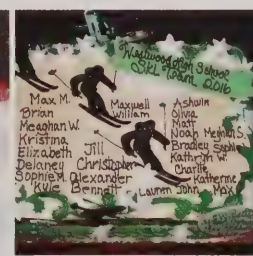 Westwood High School
Ski Team 2016
Max M.
Brian
Meaghan W.
Kristina
Elizabeth
Delaney
Sophie M.
Kyle
Maxwell
William
Jill
Christopher
Alexander
Bennett
Ashwin
Olivia
Matt
Noah Meghan S.
Bradley Sophie
Kathryn W.
Charlie
Katherine
Lauren John Max